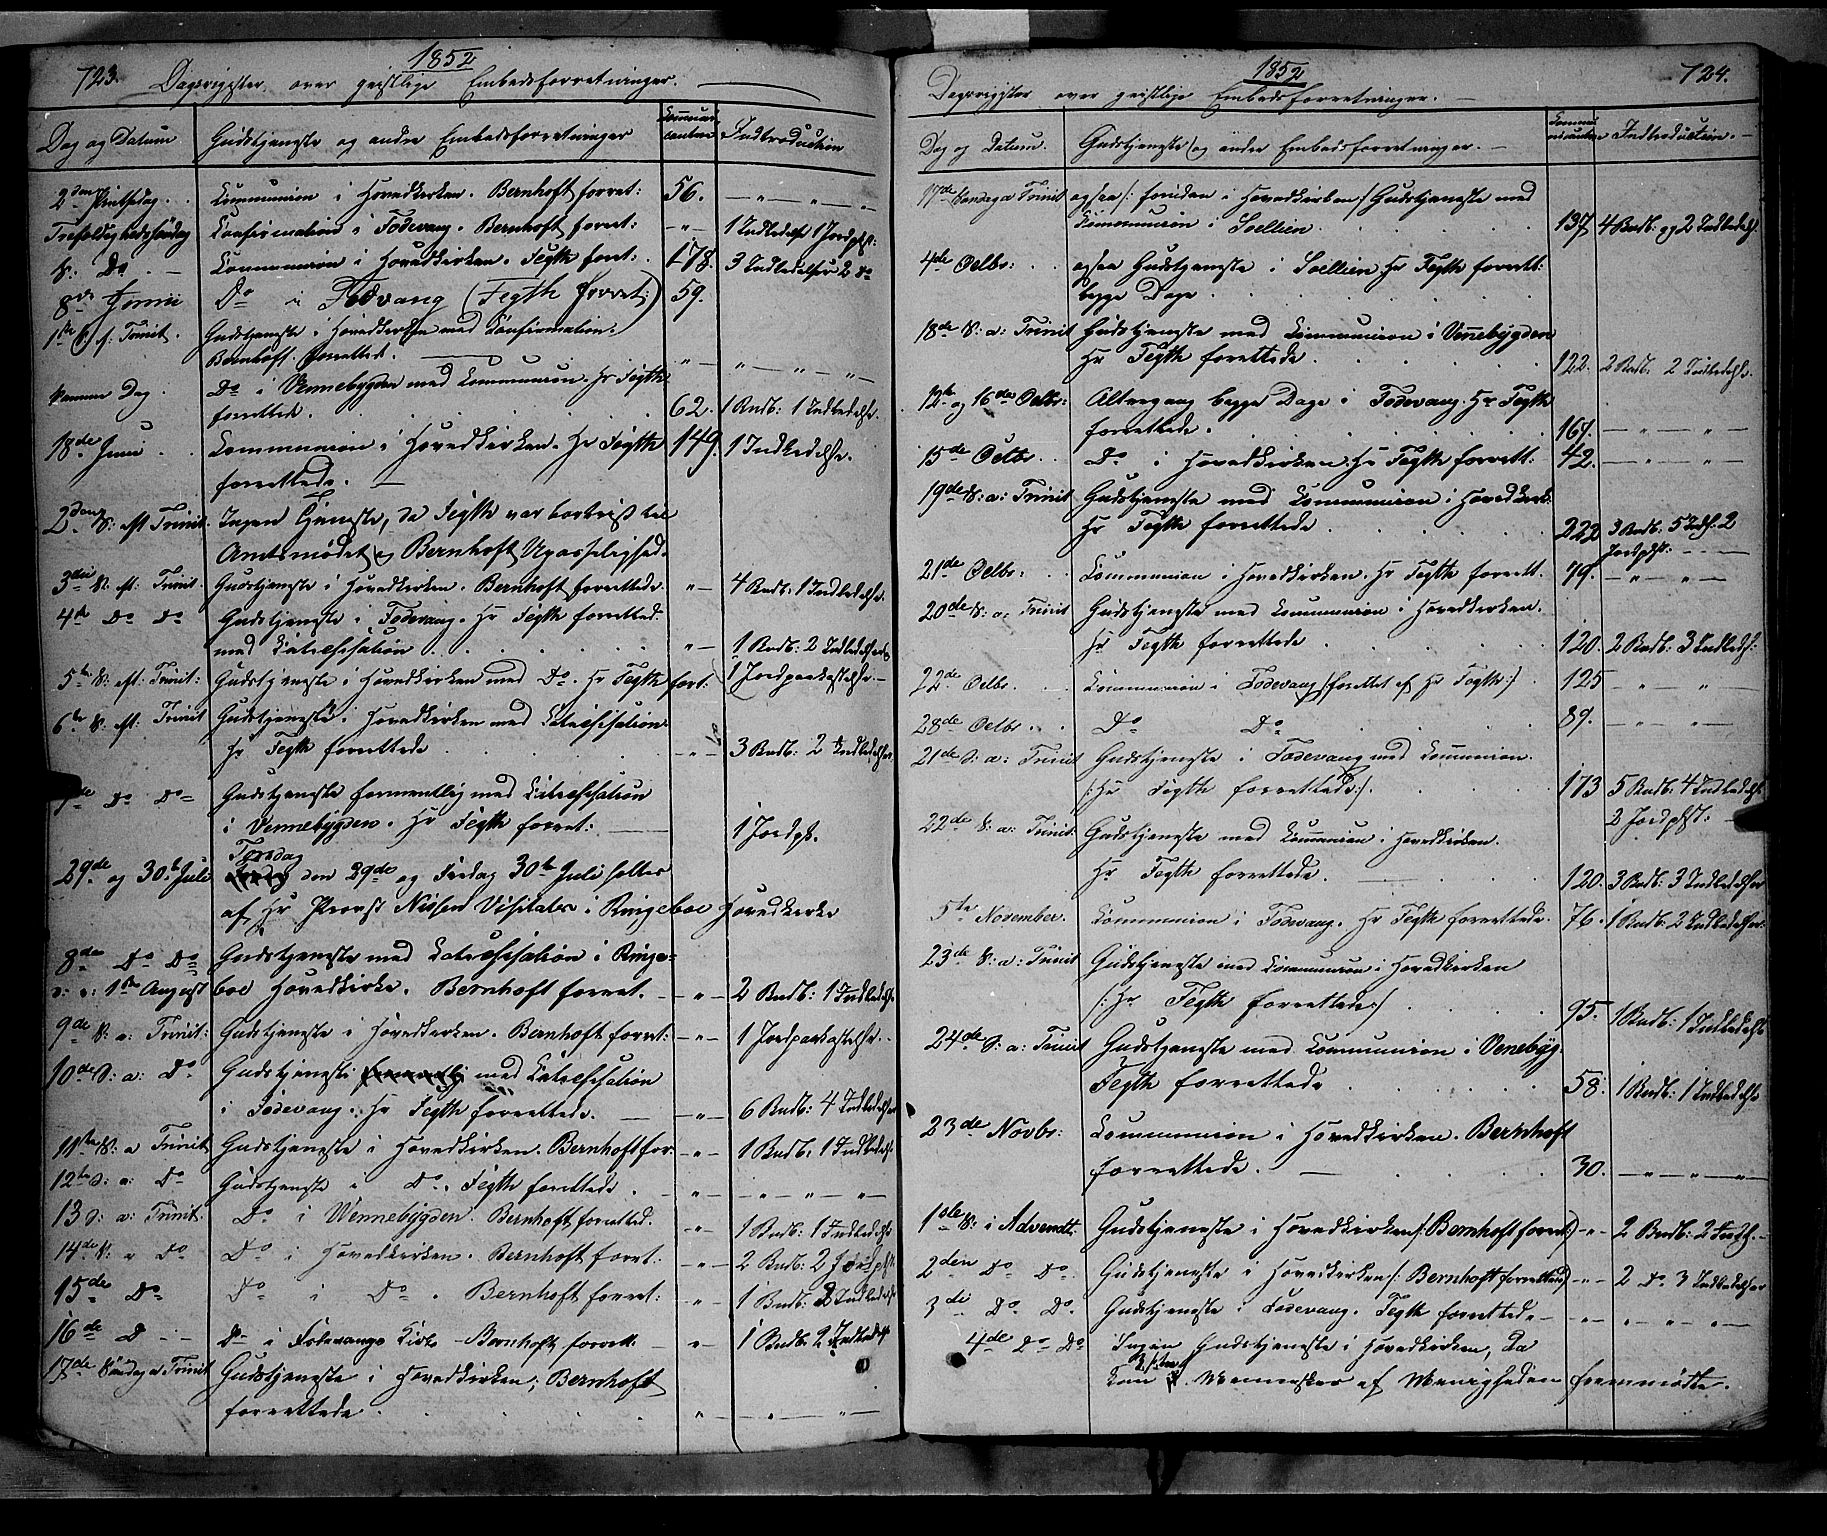 723.
1852
Dagsregister over geistlige Embedsforretninger.
Dag og Datum
Gudstjeneste og andre Embedsforretninger
Indtroduction
2den Pintsedag
Communion i Hovedkirken. Bernhoft forret: 56. " " " "
Trefoldighedssöndag Confirmation i Fodevang. Bernhoft forret: " 1 Indledelse 1 Jordpkst:
S: Do Communion i Hovedkirken. Fegth forret: 178. 3 Indledelser 2 Do
8de Junii Do i Fodevang (Fegth forret:) 59.
1ste S. f. Trinit. Gudstjeneste i Hovedkirken med Confirmation.
Bernhoft forrettede. " " " "
Samme Dag Do i Vennebygden med Communion. Hr Fegth
forrettede. 62. 1 Bndb: 1 Indledelse.
18de Juni Communion i Hovedkirken. Hr Fegth 149. 1 Indledelse.
forrettede.
2den S: eft Trinit. Ingen Tjeneste, da Fegth var bortreist til
Amtsmödet og Bernhoft Upasselighed.
3die S: eft. Trinit. Gudstjeneste i Hovedkirken. Bernhoft forrettede. " 4 Bndb: 1 Indledelse.
4de Do Do Gudstjeneste i Fodevang. Hr Fegth forrettede
med Catechisation " 1 Bndb: 2 Indledelser
5te S: eft. Trinit: Gudstjeneste i Hovedkirken med Do. Hr Fegth forr: 1 Jordpaakastelse.
6te S. eft. Trinit Gudstjeneste i Hovedkirken med Catechisation
Hr Fegth forrettede " 3 Bndb: 2 Indledelser
7de Do Do Gudstjeneste formentlig med Catechisation
i Vennebygden. Hr Fegth forret: 1 Jordpk.
Torsdag
29de og 30te Juli den 29de og Fredag 30te Juli holtes
af Hr Provst Nissen Visitats i Ringeboe Hovedkirke
8de Do Do Gudstjeneste med Catechisation i Ringe-
d: e: 1ste August boe Hovedkirke. Bernhoft forret. " 2 Bndb: 1 Indledelse.
9de S: a: Trinit: Gudstjeneste i Hovedkirken. Bernhoft forret: " 1 Jordpaakastelse.
10de S: a: Do Gudstjeneste med Catechisation
i Fodevang. Hr Fegth forrettede. " 6 Bndb: 4 Indledelser
11te S: a Trinit Gudstjeneste i Hovedkirken. Bernhoft for. " 1 Bndb: 1 Indledelse
12te S: a: Do Gudstjeneste i Do. Fegth forrettede. " " " "
13 S: a: Trinit. Do i Vennebygden. Bernhoft forrettede. " 1 Bndb: 1 Indledelse
14de S: a Do Do i Hovedkirken. Bernhoft forret: " 2 Bndb: 2 Jordpkst
15de Do Do i Do. Bernhoft forret: " 1 Bndb: 3 Indledelse
16de D Do i Fodevangs Kirke Bernhoft forrett. " 1 Bndb. 2 Indledelse
17de Söndag a Trinit Gudstjeneste i Hovedkirken; Bernhoft
forrettede. " " "
1852
724.
Dagsregister over geistlige Embedsforretninger.
Dag og Datum.
Gudstjeneste og andre Embedsforretninger.
Indtroduction.
17de Söndag a Trinit ogsaa /: foruden i Hovedkirken:/ Gudstjeneste med
Communion i Sollien. 137 4 Bndb: og 2 Indledels.
4de Octbr: ogsaa Gudstjeneste i Sollien Hr Fegth forrett:
begge Dage
18de S: a: Trinit Gudstjeneste med Communion i Vennebygden
Hr Fegth forrettede 122. 2 Bndb. 2 Indledels.
12te og 16de Octbr: Altergang begge Dage i Fodevang. Hr Fegth
forrettede. 167. " "
15de Octbr. Do i Hovedkirken. Hr Fegth forrett: 42. " "
19de S: a: Trinit Gudstjeneste med Communion i Hovedkirk:
Hr Fegth forrettede 222 3 Bndb: 5 Indl. 2
Jordpkst.
21de Octbr: Communion i Hovedkirken. Hr Fegth forrett. 49. " "
20de S: a: Trinit Gudstjeneste med Communion i Hovedkirken.
Hr Fegth forrettede 120. 2 Bndb: 3 Indleds:
22de Octbr. Communion i Fodevang /: forrettet af Hr Fegth:/ 125 " "
28de Octbr. Do Do 89. " "
21de S: a: Trinit Gudstjeneste i Fodevang med Communion.
/: Hr Fegth forrettede:/. 173 5 Bndb: 4 Indledelse
2 Jordpkst.
22de S: a: Trinit Gudstjeneste med Communion i Hovedkirken.
Hr Fegth forrettede. 120. 3 Bndb: 3 Indledelser
5te November. Communion i Fodevang. Hr Fegth forrettede. 76. 1 Bndb: 2 Indledelser.
23de S: a: Trinit Gudstjeneste med Communion i Hovedkirken
/: Hr Fegth forrettede:/ 95. 1 Bndb: 1 Indledelse
24de S: a: Trinit Gudstjeneste med Communion i Venebyg.
Fegth forrettede 58. 1 Bndb: 1 Indledelse
23de Novbr: Communion i Hovedkirken. Bernhoft
forrettede. 30. " " "
1ste S: i Advendt. Gudstjeneste i Hovedkirken /: Bernhoft forret:/ " 2 Bndb: 2 Indl.
2den Do Do. Gudstjeneste i Hovedkirken /: Bernhoft forrettede/ " 2 Do 3 Indledelser
3de Do Do. Gudstjeneste i Fodevang. Fegth forrettede " " " "
4de Do Do Ingen Gudstjeneste i Hovedkirken, da
kun Mennesker af Menigheden fremmötte.